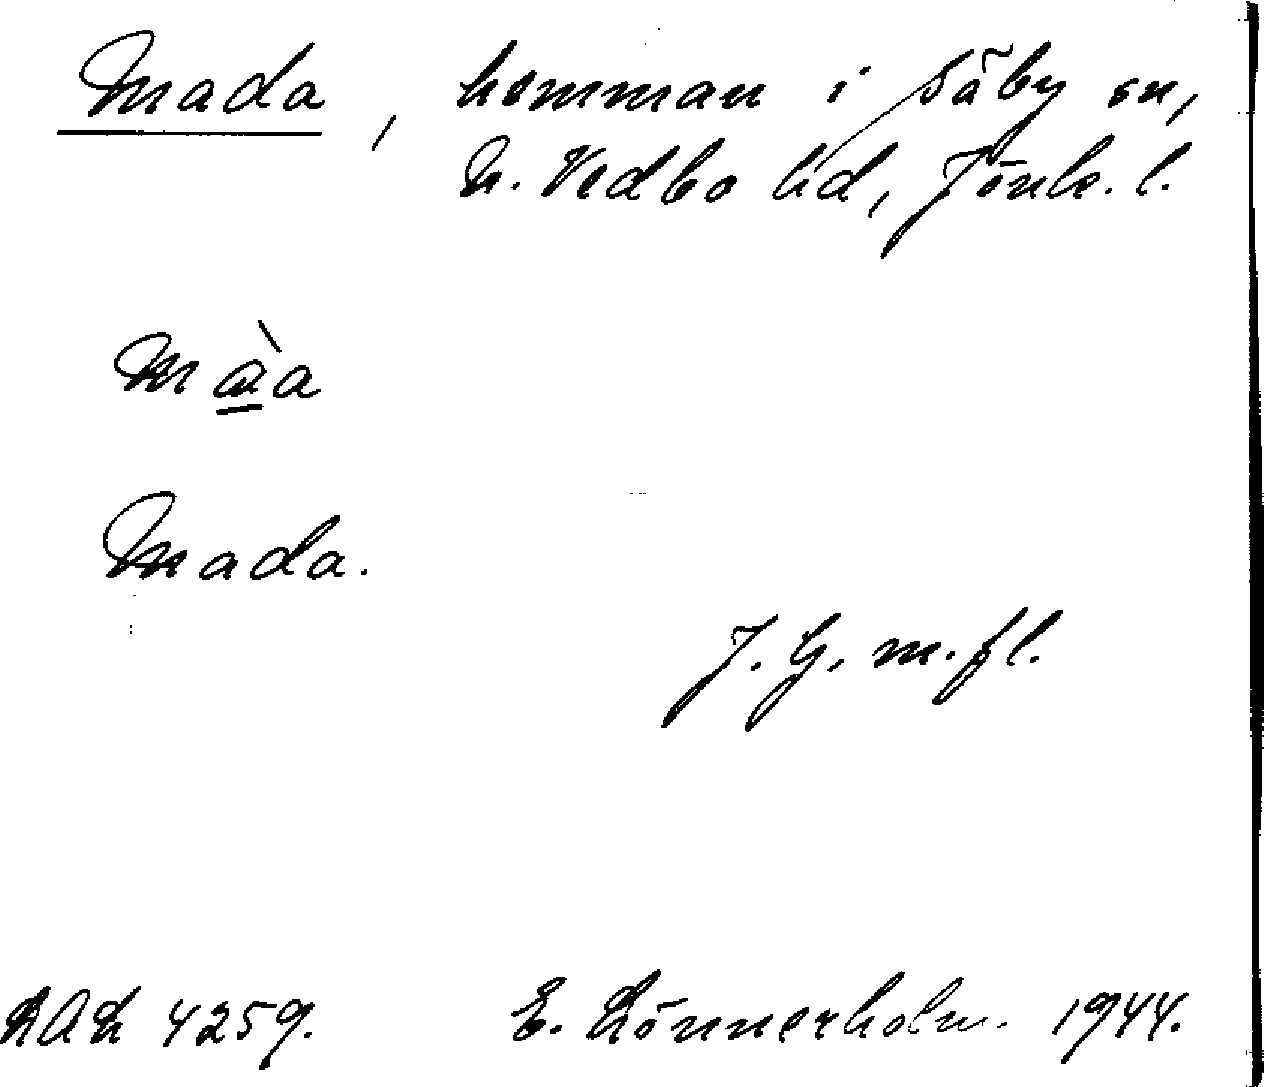 Mada, hemman i Säby sn,
N. Vedbo hd, Jönk. l.
màa
Mada.
J. G. m. fl.
LAL 4259. E. Lönnerholm. 1944.